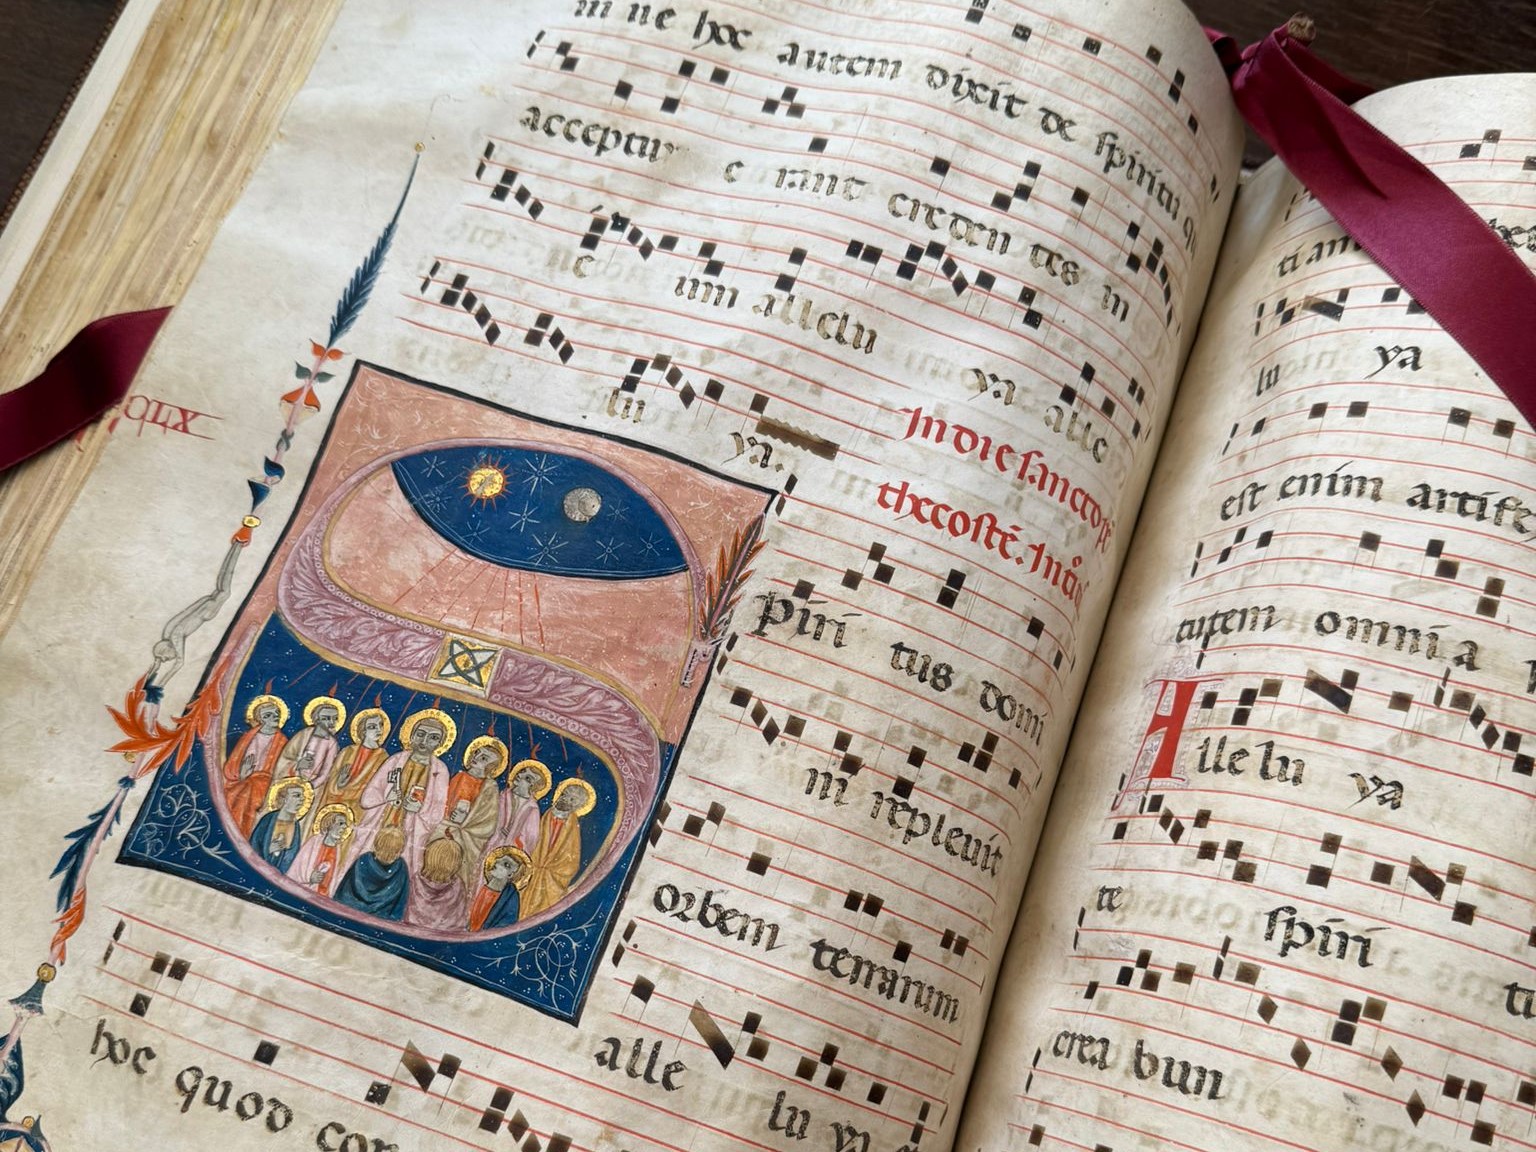 in ne hoc autem dixit de spiritu
acceptu e rant creden tes in
ue um allelu ya alle
lu ya.
In die sancto pe
thecostē. Intro
CLX
Spiri tus domi
ni repleuit
orbem terrarum
alle lu ya
hoc quod con
ti
lu ya
est enim artife
tutem omni a
Alle lu ya
te spiri
crea bun